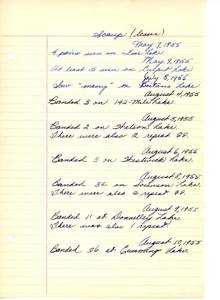 Scaup (lesser)
May 7, 1955
4 pairs seen on Lake.
May 9, 1955
At least 5 seen on Lake
July 5, 1955
Saw "many" on Lake
August 4, 1955
Banded 3 on 142-Mile Lake.
August 5, 1955
Banded 2 on Watson Lake.
There were also 2 repeat
August 6, 1955
Banded 3 on Lake.
August 8, 1955
Banded 32 on Lake.
There were also 2 repeat
August 9, 1955
Banded 11 at Donnelly Lake.
There was also 1 repeat.
August 10, 1955
Banded 26 at Cummings Lake.